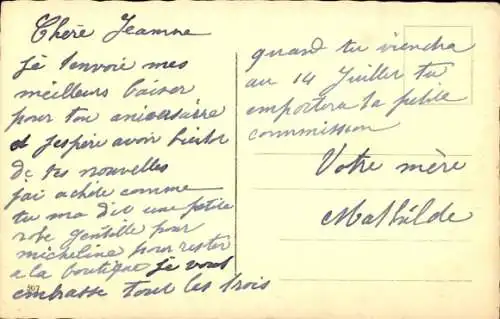 Chère Jeanne
je t'envoie mes
meilleurs baiser
pour ton aniversaire
et jespère avoir bientot
de tes nouvelles
jai achite comme
tu ma dit une petite
robe gentille pour
micheline pour rester
a la boutique je vous
embrasse tout les trois
907
quand tu viendra
au 14 Juillet tu
emportera ta petite
commission
Votre mère
Mathilde